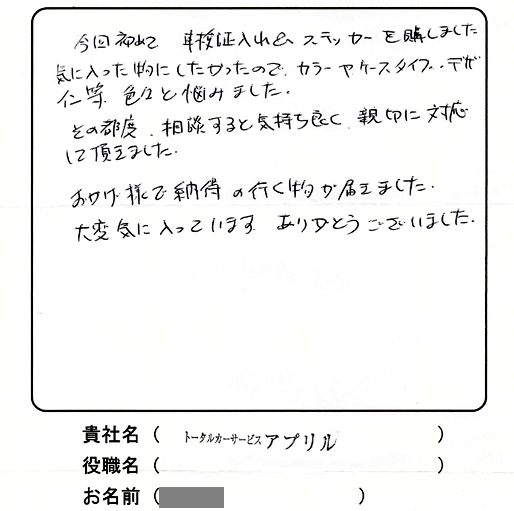 今回初めて 車検証入れ&ステッカーを購しました
気に入った物にしたかったので、カラーやケースタイプ・デザ
イン等 色々と悩みました。
その都度、相談すると気持ち良く、親切に対応
して頂きました。
おかげ様で納得の行く物が届きました。
大変気に入っています ありがとうございました。
貴社名 ( トータルカーサービス アプリル )
役職名 ( )
お名前 ( )